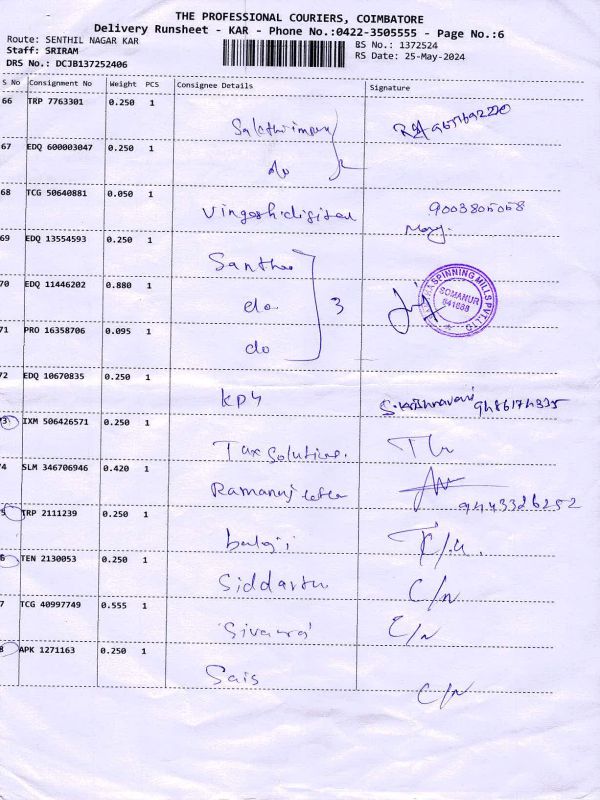 THE PROFESSIONAL COURIERS, COIMBATORE
Delivery Runsheet - KAR - Phone No.:0422-3505555 - Page No.:6
Route: SENTHIL NAGAR KAR
BS No.: 1372524
Staff: SRIRAM
RS Date: 25-May-2024
DRS No.: DCJB137252406
S No Consignment No Weight PCS Consignee Details Signature
66 TRP 7763301 0.250 1
67 EDQ 600003047 0.250 1
do
68 TCG 50640881 0.050 1
9003805058
69 EDQ 13554593 0.250 1
70 EDQ 11446202 0.880 1
do 3
SPINNING MILLS PVT.LTD
SOMANUR
641668
71 PRO 16358706 0.095 1
do
72 EDQ 10670835 0.250 1
73 IXM 506426571 0.250 1
Tax Solutions.
74 SLM 346706946 0.420 1
9443326252
75 TRP 2111239 0.250 1
balaji
76 TEN 2130053 0.250 1
Siddarth C/N
77 TCG 40997749 0.555 1
C/N
78 APK 1271163 0.250 1
Sais C/N